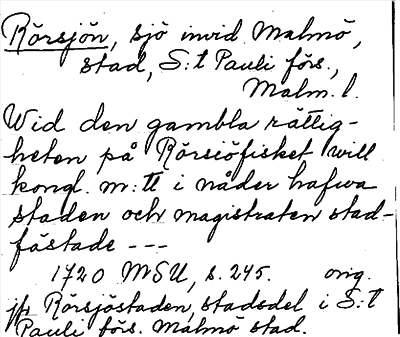 Rörsjön, sjö invid Malmö,
stad, S:t Pauli förs.,
Malm. l.
Wid den gambla rättig-
heten på Rörsiöfisket will
kongl. m:tt i nåder hafwa
staden och magistraten stad-
fästade ---
1720 MSU, s. 245. orig.
jfr Rörsjöstaden, stadsdel i S:t
Pauli förs. Malmö stad.